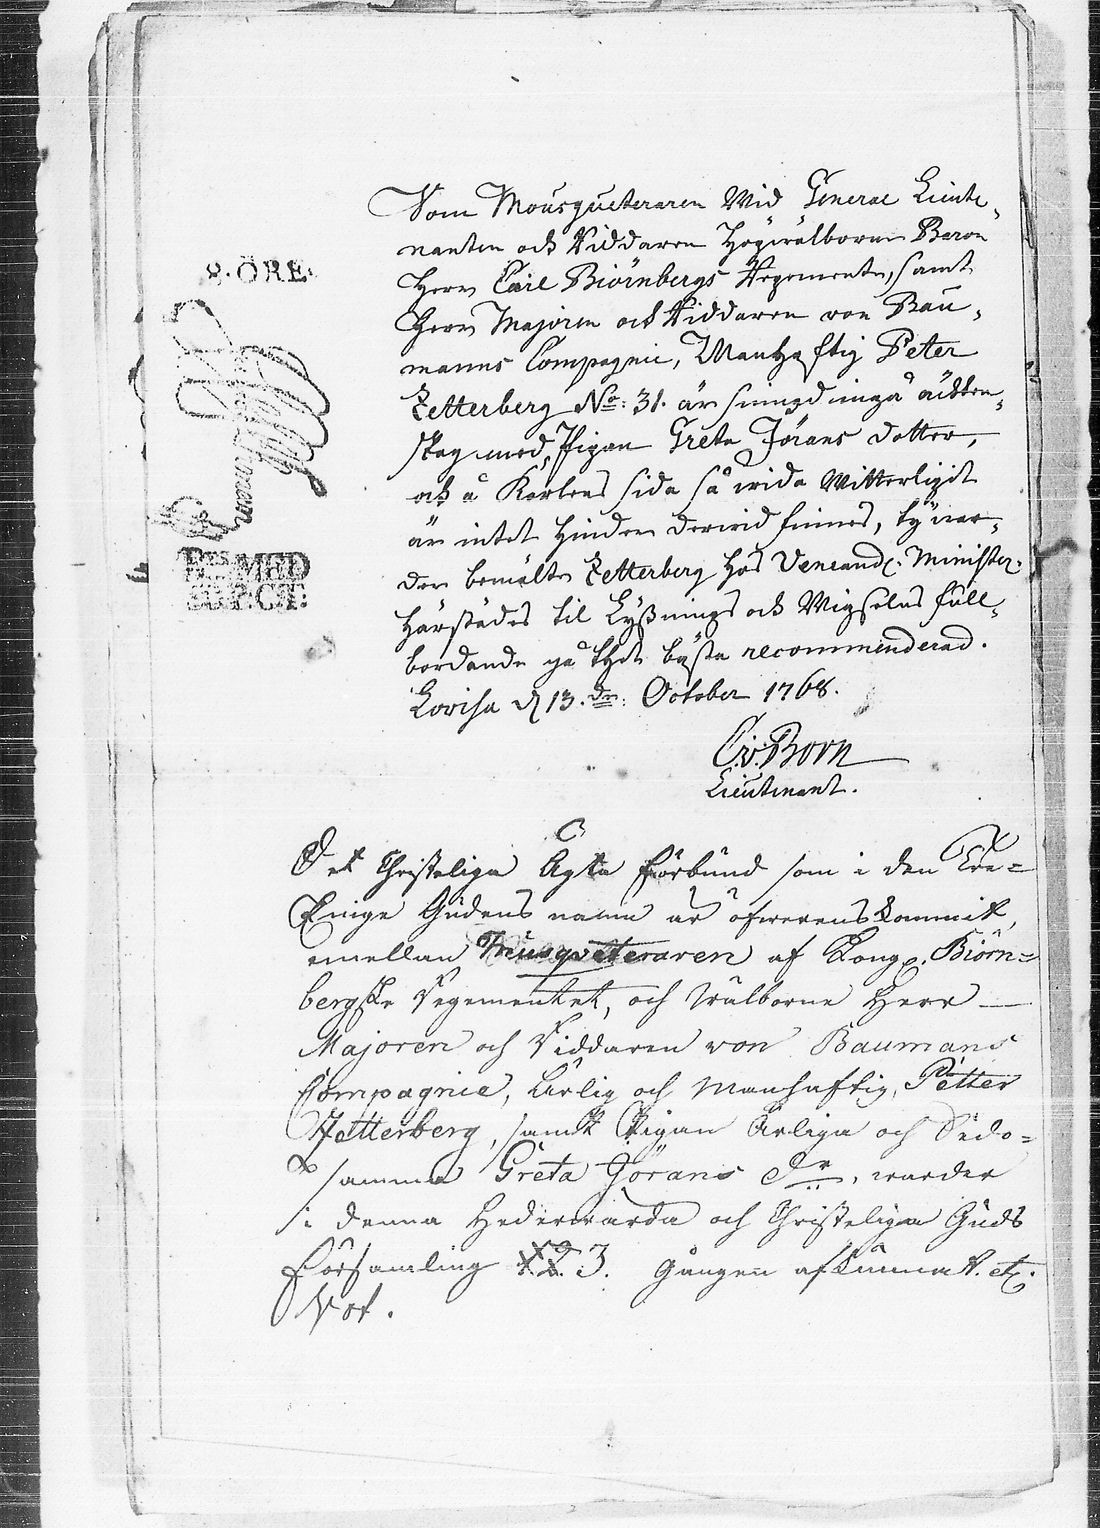 8. ÖRE.
Som Mousqueteraren Wid General Lieute-
nanten och Riddaren Högwälborne Baron
Herr Carl Björnbergs Regemente, samt
Herr Majoren och Riddaren von Bau-
manns Compagnie, Manhaftig Peter
Zetterberg No: 31. är sinnad ingå äckten-
skap med Pigan Greta Jörans dotter,
och å Karlens sida så vida Witterligit
är intet hinder dervid finnes, ty war-
der bemälte Zetterberg hos Venerand. Minister.
härstädes til Lyßnings och Wigselns full-
bordande på thet bästa recommenderad.
Lovisa d 13.de: October 1768.
C. v. Born
Lieutenant.
Det Christeliga Ägta förbund som i den Tre=
Enige Gudens namn är öfwerenskommit,
emellan Musqueteraren af Kongl. Björn=
bergske Regementet, och Wälborne Herr
Majoren och Riddaren von Baumans
Compagnie, Ärlig och Manhaftig, Petter
Zetterberg, samt Pigan Ärliga och Sedo=
samma Greta Jörans Dr, warder
i denna Hedervärda och Christeliga Guds
församling 3. Gången afkunnat. etc.
Vot.